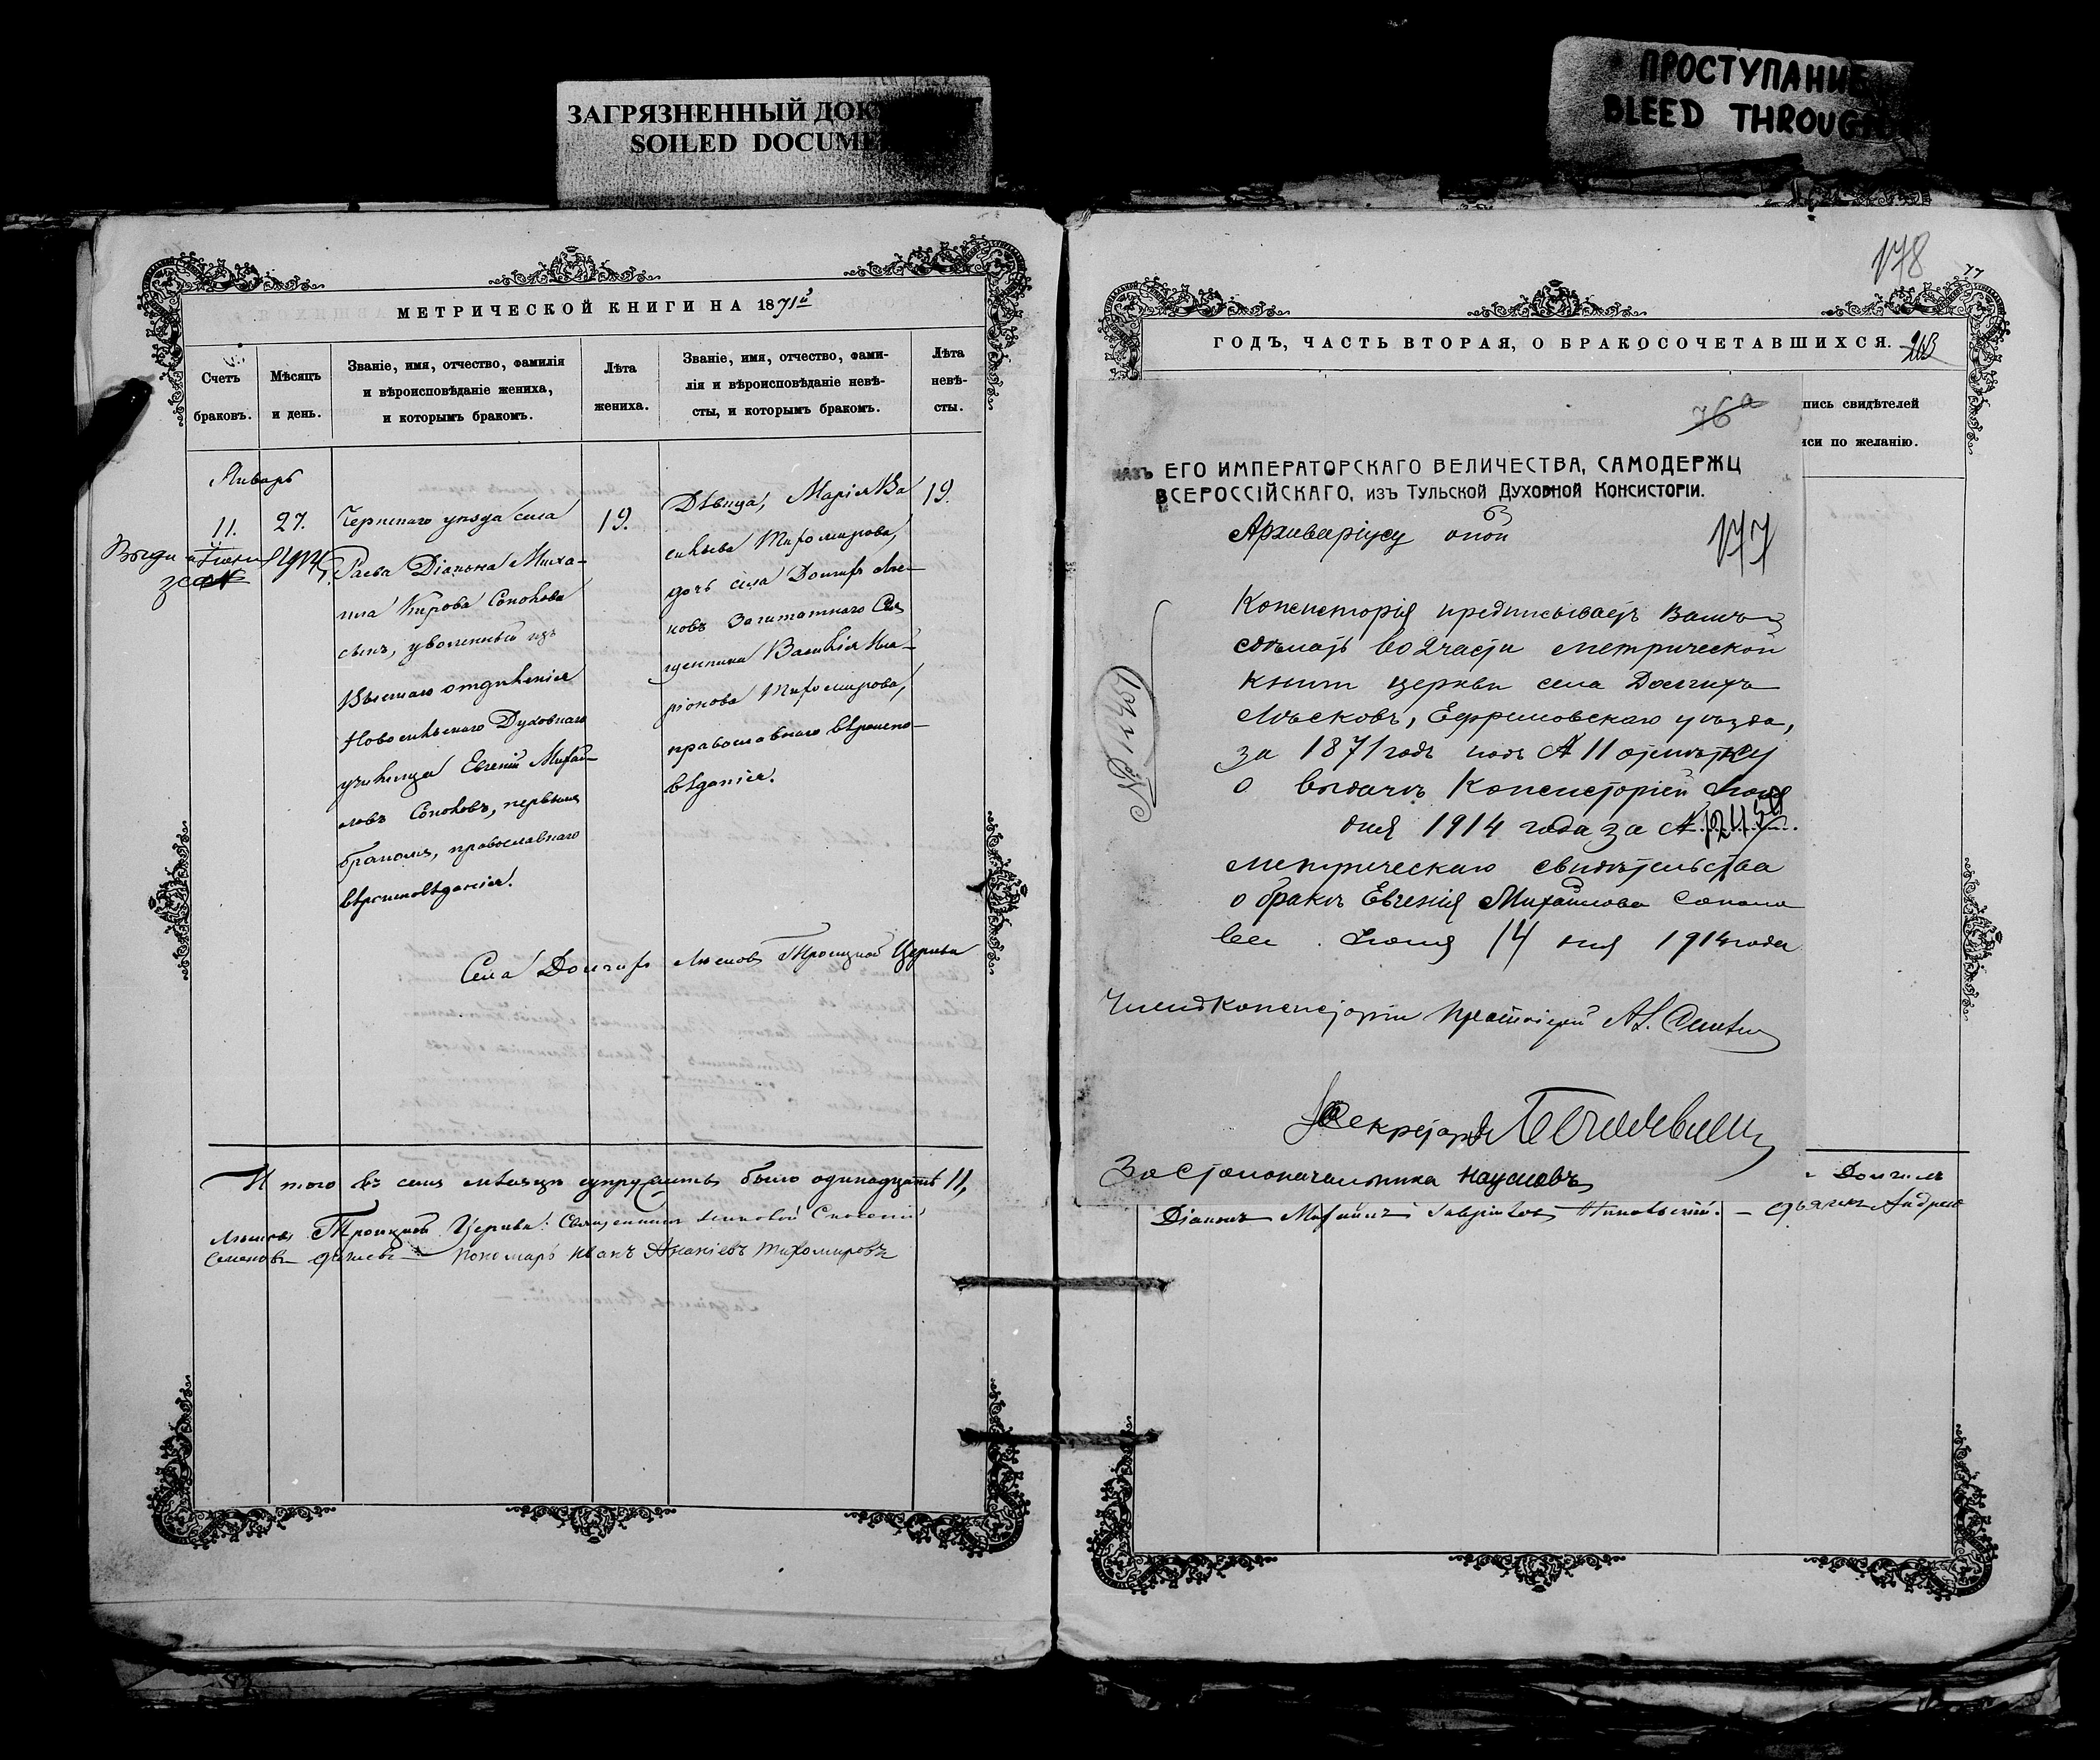 ЗАГРЯЗНЕННЫЙ ДОК
SOILED DOCUME
ПРОСТУПАНИЕ
BLEED THROUGH
МЕТРИЧЕСКОЙ КНИГИ НА 1871й
Счетъ браковъ.
Мѣсяцъ и день.
Званіе, имя, отчество, фамилія
и вѣроисповѣданіе жениха,
и которымъ бракомъ.
Лѣта жениха.
Званіе, имя, отчество, фами-
лія и вѣроисповѣданіе невѣ-
сты, и которымъ бракомъ.
Лѣта невѣ-
сты.
Январь
11.
27.
Чернскаго уѣзда села
Раева Діакона Миха-
ила Соколова
сынъ, уволенный изъ
Высшаго отдѣленія
Новосильскаго Духовнаго
училища Евгеній Михай-
ловъ Соколовъ, первымъ
бракомъ, православнаго
вѣроисповѣданія.
19.
Дѣвица, Марія Ва
сильева Тихомирова,
дочь села Долгихъ Лѣс-
ковъ Заштатнаго Свя
щенника Василія Ила-
ріонова Тихомирова,
православнаго вѣроиспо-
вѣданія.
19.
1914
Села Долгихъ Лѣсковъ Троицкой Церкви
И того въ семъ мѣсяцѣ супружествъ было одинадцать 11,
Троицкой Церкви: Священникъ
Семеновъ Пономарь Иванъ Ананіевъ Тихомировъ
178
77
ГОДЪ, ЧАСТЬ ВТОРАЯ, О БРАКОСОЧЕТАВШИХСЯ.
пись свидѣтелей
иси по желанію.
76а
ЕГО ИМПЕРАТОРСКАГО ВЕЛИЧЕСТВА, САМОДЕРЖЦ
ВСЕРОССІЙСКАГО, ИЗЪ ТУЛЬСКОЙ ДУХОВНОЙ КОНСИСТОРІИ.
Архиваріусу оной
177
Консисторія предписываетъ Вамъ
сдѣлать во 2 части метрической
книги церкви села Долгихъ
Лѣсковъ, Ефремовскаго уѣзда,
за 1871 годъ подъ № 11 отмѣтку
о выдачѣ Консисторіей Іюня
дня 1914 года за №
метрическаго свидѣтельства
о бракѣ Евгенія Михайлова Соколо
ва. Іюня 14 дня 1914 года
Членъ Консисторіи Протоіерей
Секретарь
За Столоначальника Наумовъ
Долгихъ
Діаконъ Михаилъ Никольский. — Андрей